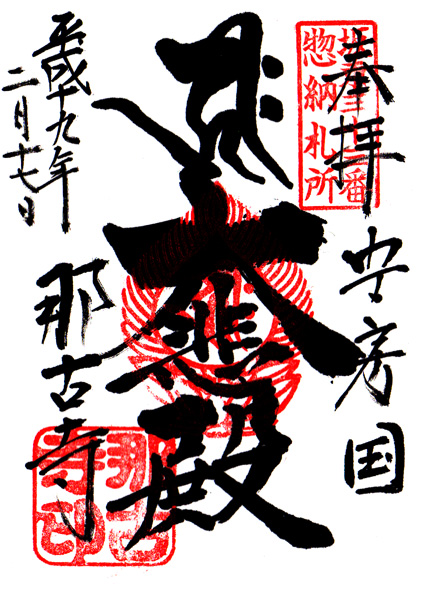 奉拝
坂東三十三番
惣納札所
安房国
大悲殿
平成十九年
二月十七日
那古寺
那古
寺印